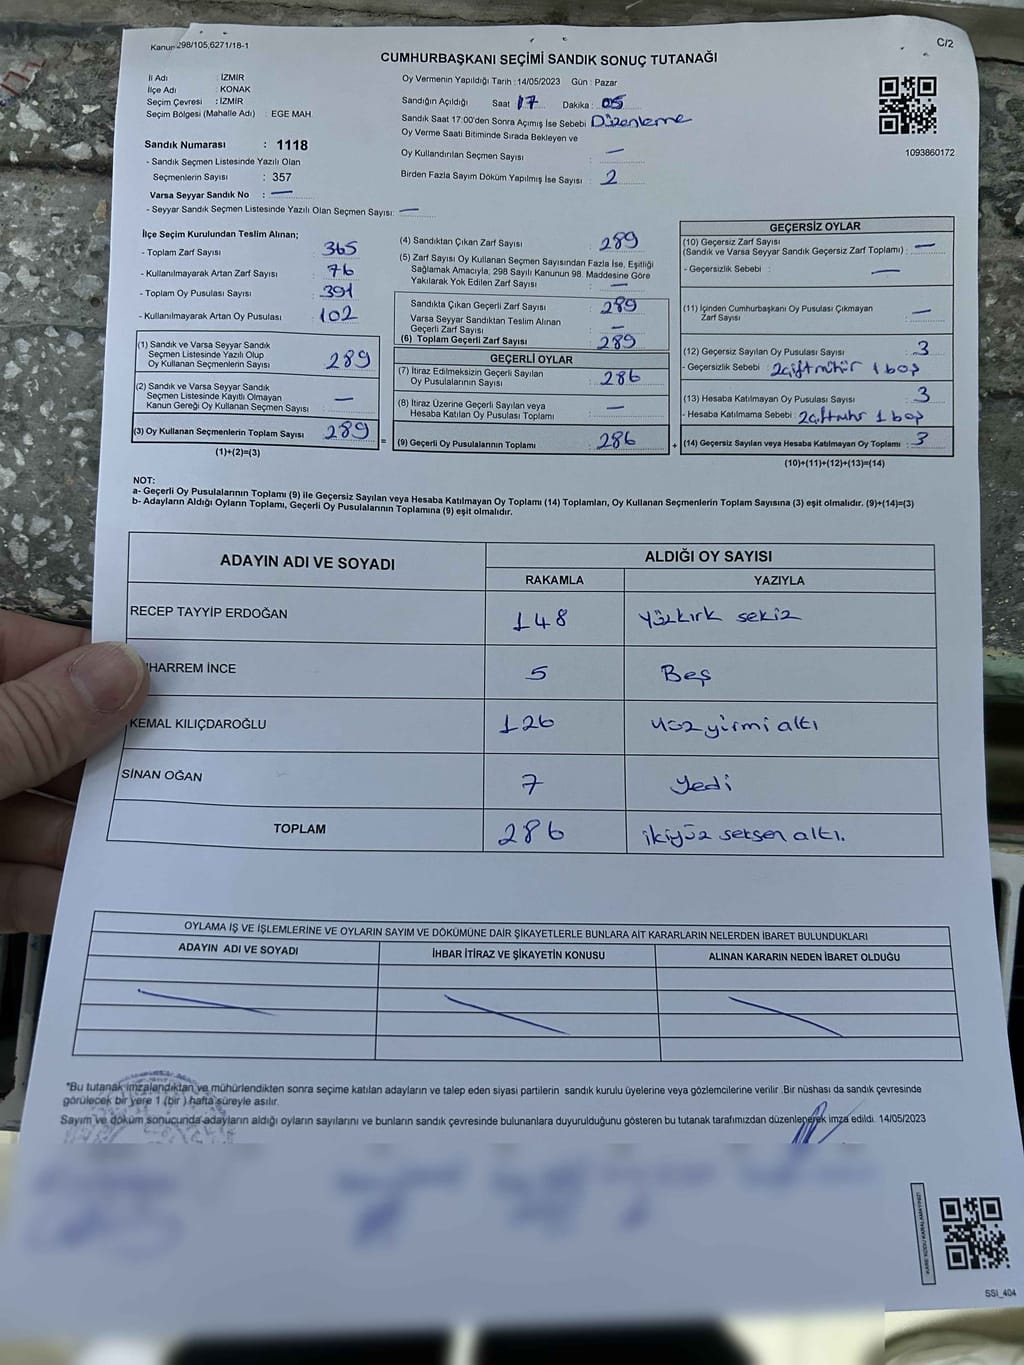 Kanun 298/105,6271/18-1
C/2
CUMHURBAŞKANI SEÇİMİ SANDIK SONUÇ TUTANAĞI
İl Adı : İZMİR
İlçe Adı : KONAK
Seçim Çevresi : İZMİR
Seçim Bölgesi (Mahalle Adı) : EGE MAH
Sandık Numarası : 1118
- Sandık Seçmen Listesinde Yazılı Olan
Seçmenlerin Sayısı : 357
Varsa Seyyar Sandık No : —
- Seyyar Sandık Seçmen Listesinde Yazılı Olan Seçmen Sayısı: —
Oy Vermenin Yapıldığı Tarih : 14/05/2023 Gün : Pazar
Sandığın Açıldığı Saat : 17 Dakika : 05
Sandık Saat 17:00'den Sonra Açımış İse Sebebi : Düzenleme
Oy Verme Saati Bitiminde Sırada Bekleyen ve
Oy Kullandırılan Seçmen Sayısı : —
Birden Fazla Sayım Döküm Yapılmış İse Sayısı : 2
1093860172
İlçe Seçim Kurulundan Teslim Alınan;
- Toplam Zarf Sayısı : 365
- Kullanılmayarak Artan Zarf Sayısı : 76
- Toplam Oy Pusulası Sayısı : 391
- Kullanılmayarak Artan Oy Pusulası : 102
(1) Sandık ve Varsa Seyyar Sandık
Seçmen Listesinde Yazılı Olup
Oy Kullanan Seçmenlerin Sayısı : 289
(2) Sandık ve Varsa Seyyar Sandık
Seçmen Listesinde Kayıtlı Olmayan
Kanun Gereği Oy Kullanan Seçmen Sayısı : —
(3) Oy Kullanan Seçmenlerin Toplam Sayısı : 289
(1)+(2)=(3)
=
(4) Sandıktan Çıkan Zarf Sayısı : 289
(5) Zarf Sayısı Oy Kullanan Seçmen Sayısından Fazla İse, Eşitliği
Sağlamak Amacıyla, 298 Sayılı Kanunun 98. Maddesine Göre
Yakılarak Yok Edilen Zarf Sayısı : —
Sandıkta Çıkan Geçerli Zarf Sayısı : 289
Varsa Seyyar Sandıktan Teslim Alınan
Geçerli Zarf Sayısı : —
(6) Toplam Geçerli Zarf Sayısı : 289
GEÇERLİ OYLAR
(7) İtiraz Edilmeksizin Geçerli Sayılan
Oy Pusulalarının Sayısı : 286
(8) İtiraz Üzerine Geçerli Sayılan veya
Hesaba Katılan Oy Pusulası Toplamı : —
(9) Geçerli Oy Pusulalarının Toplamı : 286
+
GEÇERSİZ OYLAR
(10) Geçersiz Zarf Sayısı
(Sandık ve Varsa Seyyar Sandık Geçersiz Zarf Toplamı) : —
- Geçersizlik Sebebi : —
(11) İçinden Cumhurbaşkanı Oy Pusulası Çıkmayan
Zarf Sayısı : —
(12) Geçersiz Sayılan Oy Pusulası Sayısı : 3
- Geçersizlik Sebebi : 2çift mühür 1 boş
(13) Hesaba Katılmayan Oy Pusulası Sayısı : 3
- Hesaba Katılmama Sebebi : 2çift mühr 1 boş
(14) Geçersiz Sayılan veya Hesaba Katılmayan Oy Toplamı : 3
(10)+(11)+(12)+(13)=(14)
NOT:
a- Geçerli Oy Pusulalarının Toplamı (9) ile Geçersiz Sayılan veya Hesaba Katılmayan Oy Toplamı (14) Toplamları, Oy Kullanan Seçmenlerin Toplam Sayısına (3) eşit olmalıdır. (9)+(14)=(3)
b- Adayların Aldığı Oyların Toplamı, Geçerli Oy Pusulalarının Toplamına (9) eşit olmalıdır.
ADAYIN ADI VE SOYADI
ALDIĞI OY SAYISI
RAKAMLA YAZIYLA
RECEP TAYYİP ERDOĞAN 148 Yüzkırk sekiz
HARREM İNCE 5 Beş
KEMAL KILIÇDAROĞLU 126 yüz yirmi altı
SİNAN OĞAN 7 Yedi
TOPLAM 286 ikiyüz seksen altı.
OYLAMA İŞ VE İŞLEMLERİNE VE OYLARIN SAYIM VE DÖKÜMÜNE DAİR ŞİKAYETLERLE BUNLARA AİT KARARLARIN NELERDEN İBARET BULUNDUKLARI
ADAYIN ADI VE SOYADI İHBAR İTİRAZ VE ŞİKAYETİN KONUSU ALINAN KARARIN NEDEN İBARET OLDUĞU
*Bu tutanak imzalandıktan ve mühürlendikten sonra seçime katılan adayların ve talep eden siyasi partilerin sandık kurulu üyelerine veya gözlemcilerine verilir .Bir nüshası da sandık çevresinde
görülecek bir yere 1 (bir ) hafta süreyle asılır.
Sayım ve döküm sonucunda adayların aldığı oyların sayılarını ve bunların sandık çevresinde bulunanlara duyurulduğunu gösteren bu tutanak tarafımızdan düzenlenerek imza edildi. 14/05/2023
SSI_404